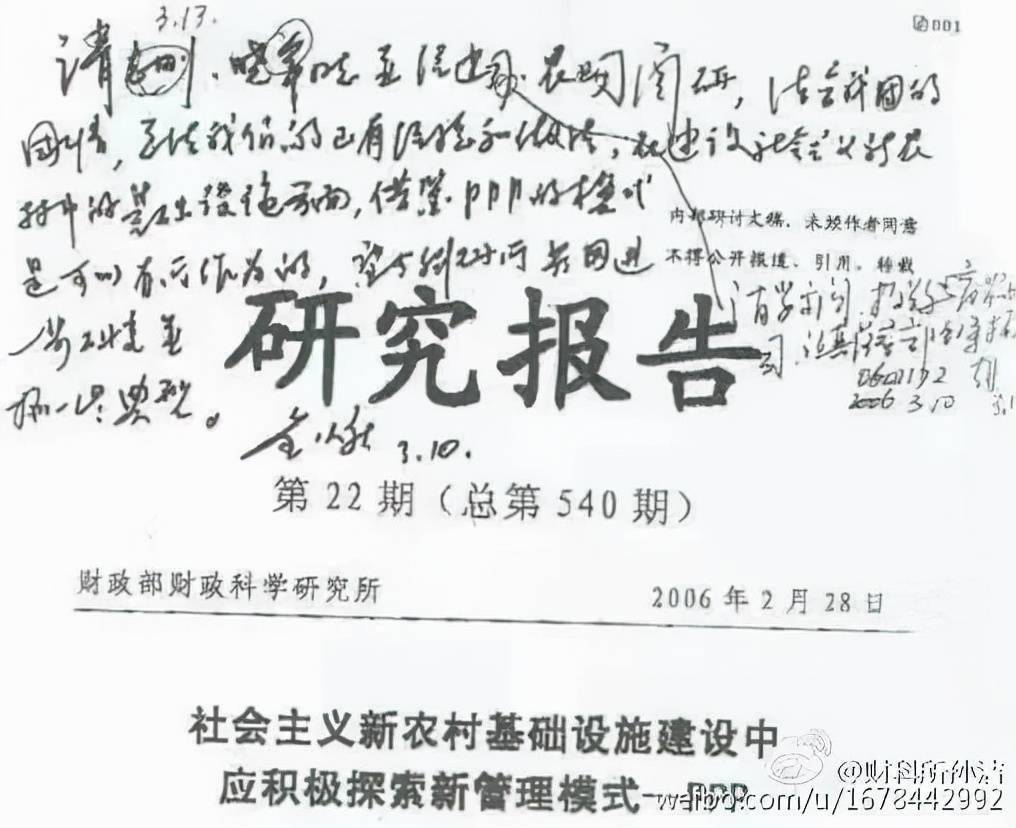 3.13.
001
请志刚、晓军同志并经建司、农司阅研，结合我国的
国情，总结我们的已有经验和做法，在建设社会主义新农
村中的基础设施方面，借鉴PPP的模式
是可以有所作为的，望与科研所共同进
内部研讨文稿，未经作者同意
不得公开报道、引用、转载
研究报告
3.10.
0601192
2006 3.10
第22期（总第540期）
财政部财政科学研究所
2006年2月28日
社会主义新农村基础设施建设中
应积极探索新管理模式—PPP
@财科所孙洁
weibo.com/u/1678442992